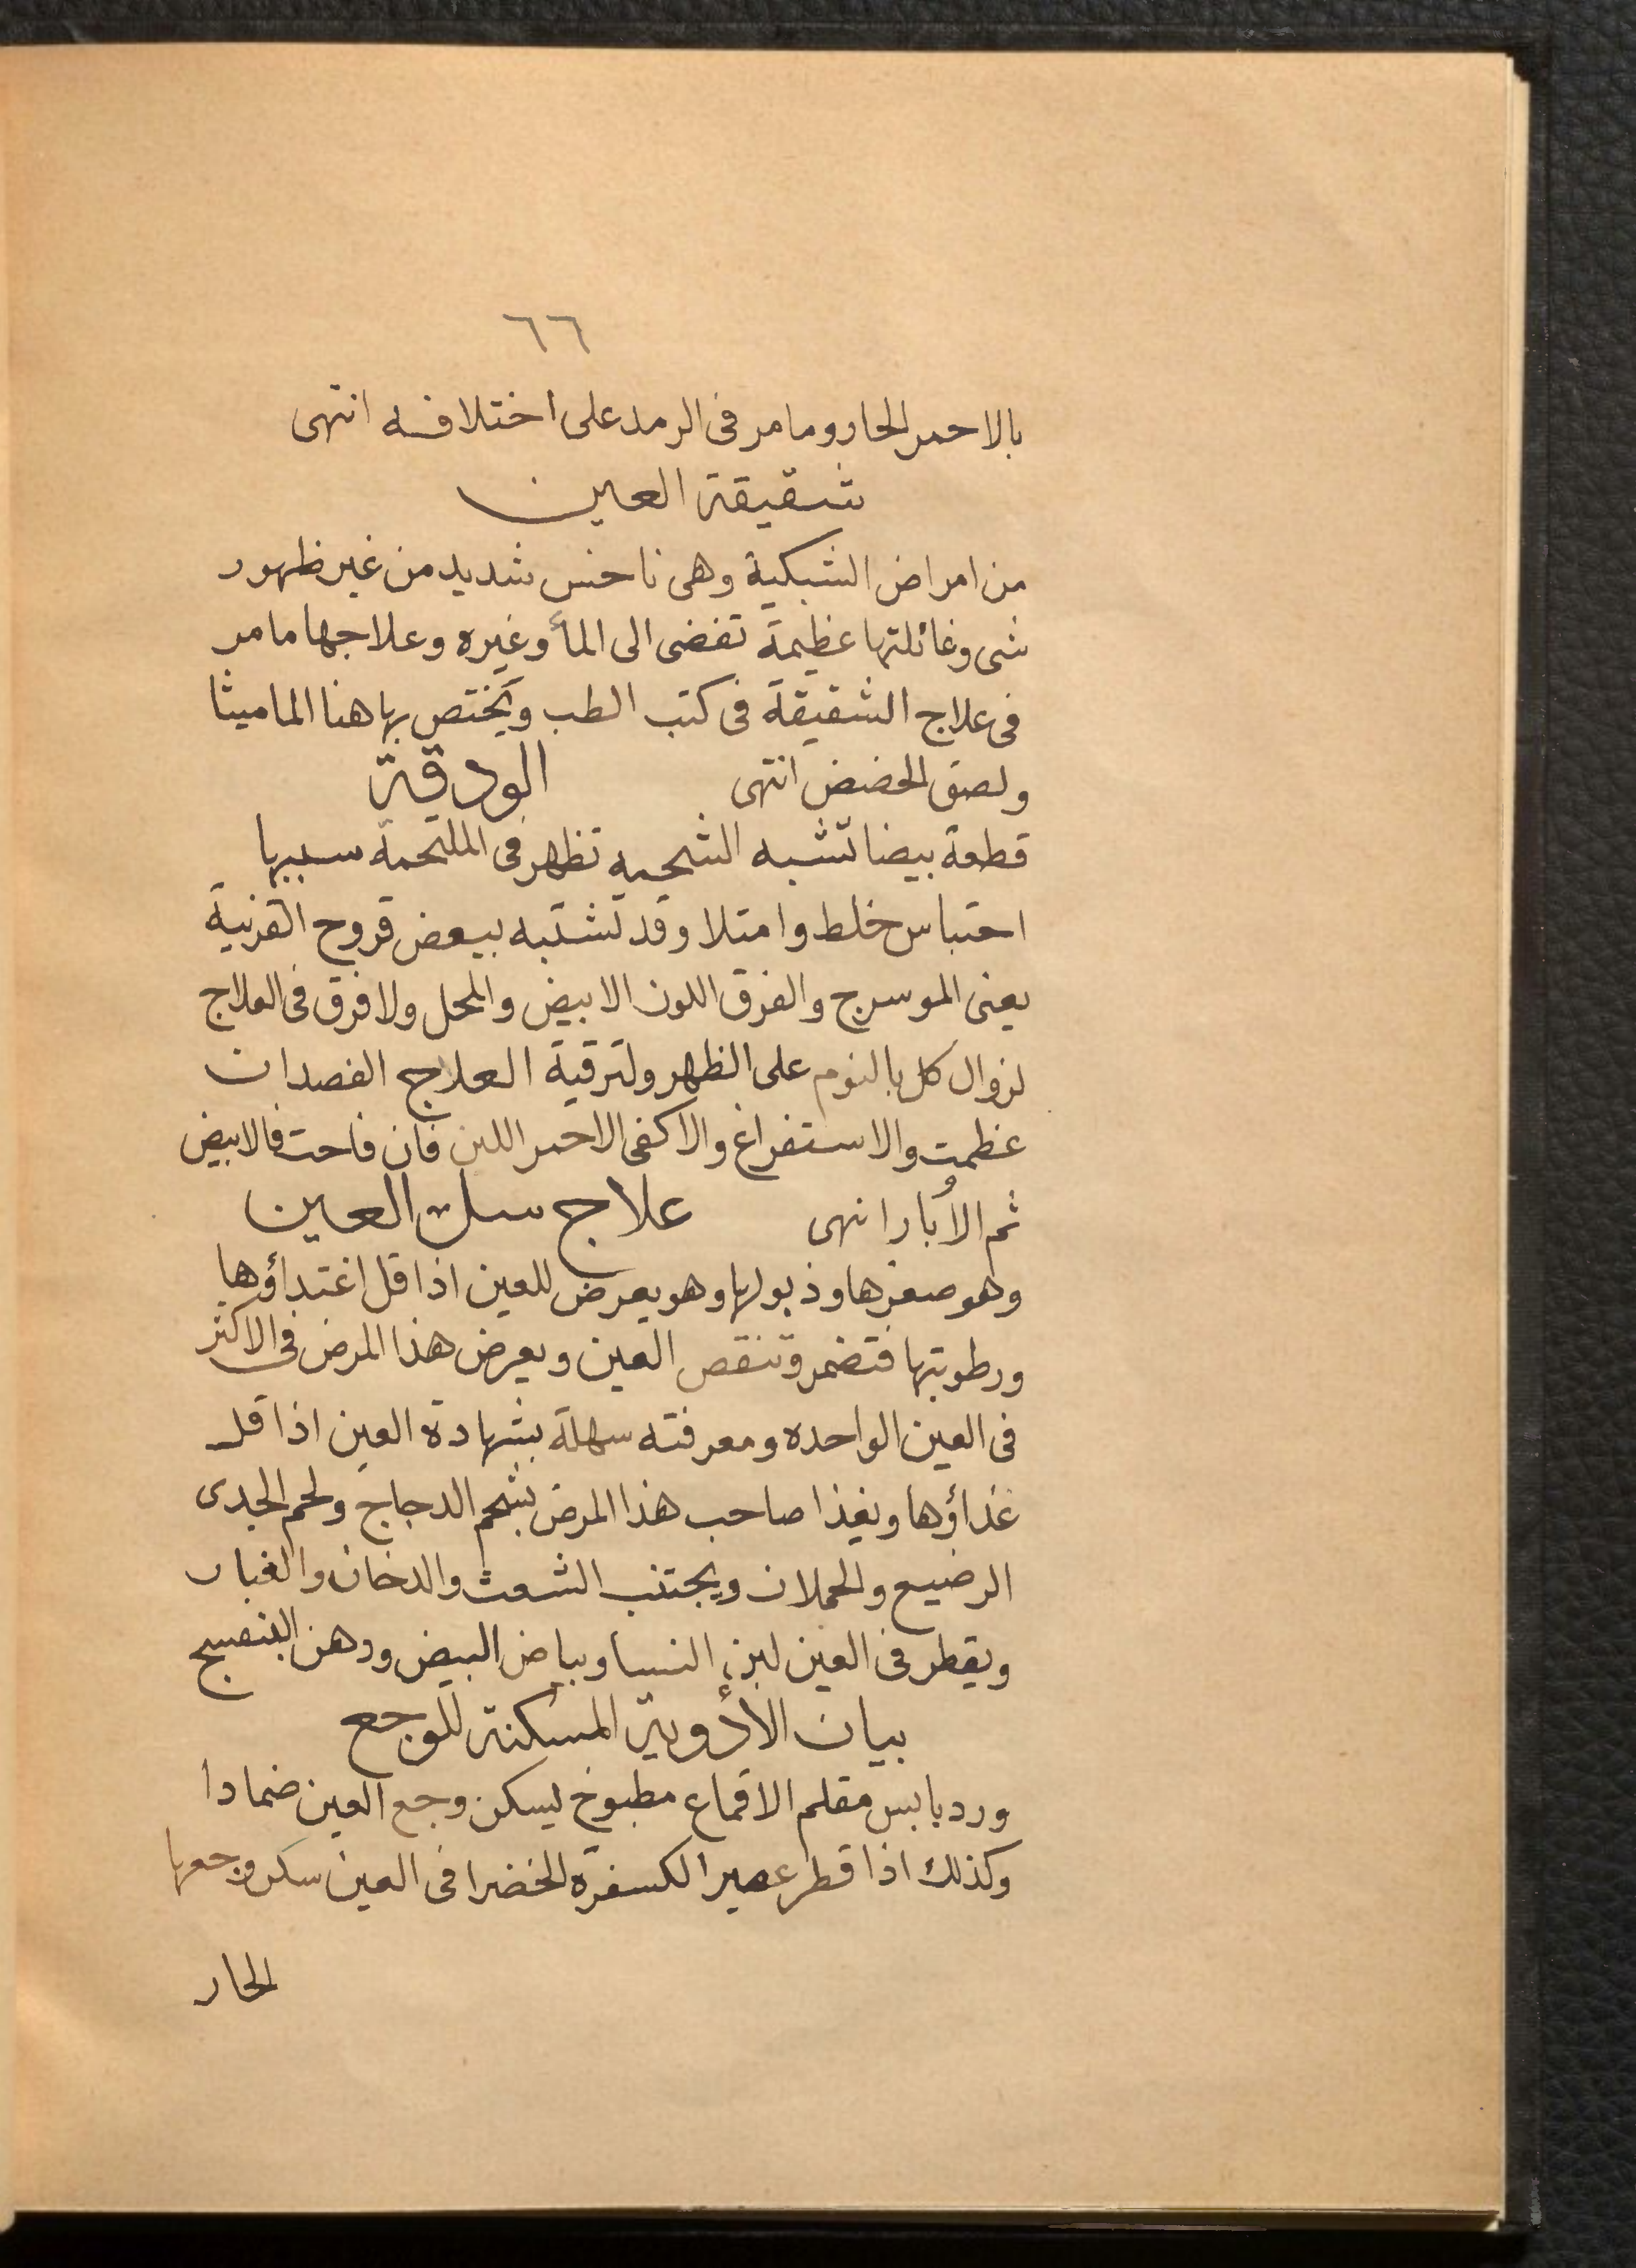 ٦٦
بالاحمر الحار ومامر فى الرمد على اختلافه انتهى
شقيقة العين
من امراض الشبكية وهى ناخس شديد من غير ظهور
شى وغائلتها عظيمة تفضى الى المأ وغيره وعلاجها مامر
فى علاج الشقيقة فى كتب الطب ويختص بها هنا الماميثا
ولصق الحضض انتهى الودقة
قطعة بيضا تشبه الشحميه تظهر فى الملتحمة سببها
احتباس خلط وامتلا وقد تشتبه ببعض قروح القرنية
يعنى الموسرج والفرق اللون الابيض والمحل ولا فرق فى العلاج
لزوال كل بالنوم على الظهر ولترقية العلاج الفصد ان
عظمت والاستفراغ والاكفى الاحمر اللين فان فاحت فالابيض
ثم الأبار انهى علاج سل العين
وهو صغرها وذبولها وهو يعرض للعين اذا قل اغتداؤها
ورطوبتها فتضمر وتنقص العين ويعرض هذا المرض فى الاكثر
فى العين الواحده ومعرفته سهلة بشهادة العين اذا قل
غذاؤها ويغذا صاحب هذا المرض بشحم الدجاج ولحم الجدى
الرضيع والحملان ويجتنب الشعث والدخان والغبار
ويقطر فى العين لبن النسا وبياض البيض ودهن البنفسج
بيان الأدوية المسكنة للوجع
ورد يابس مقلم الاقماع مطبوخ ليسكن وجع العين ضمادا
وكذلك اذا قطر عصير الكسفرة الخضرا فى العين سكن وجعها
الحار